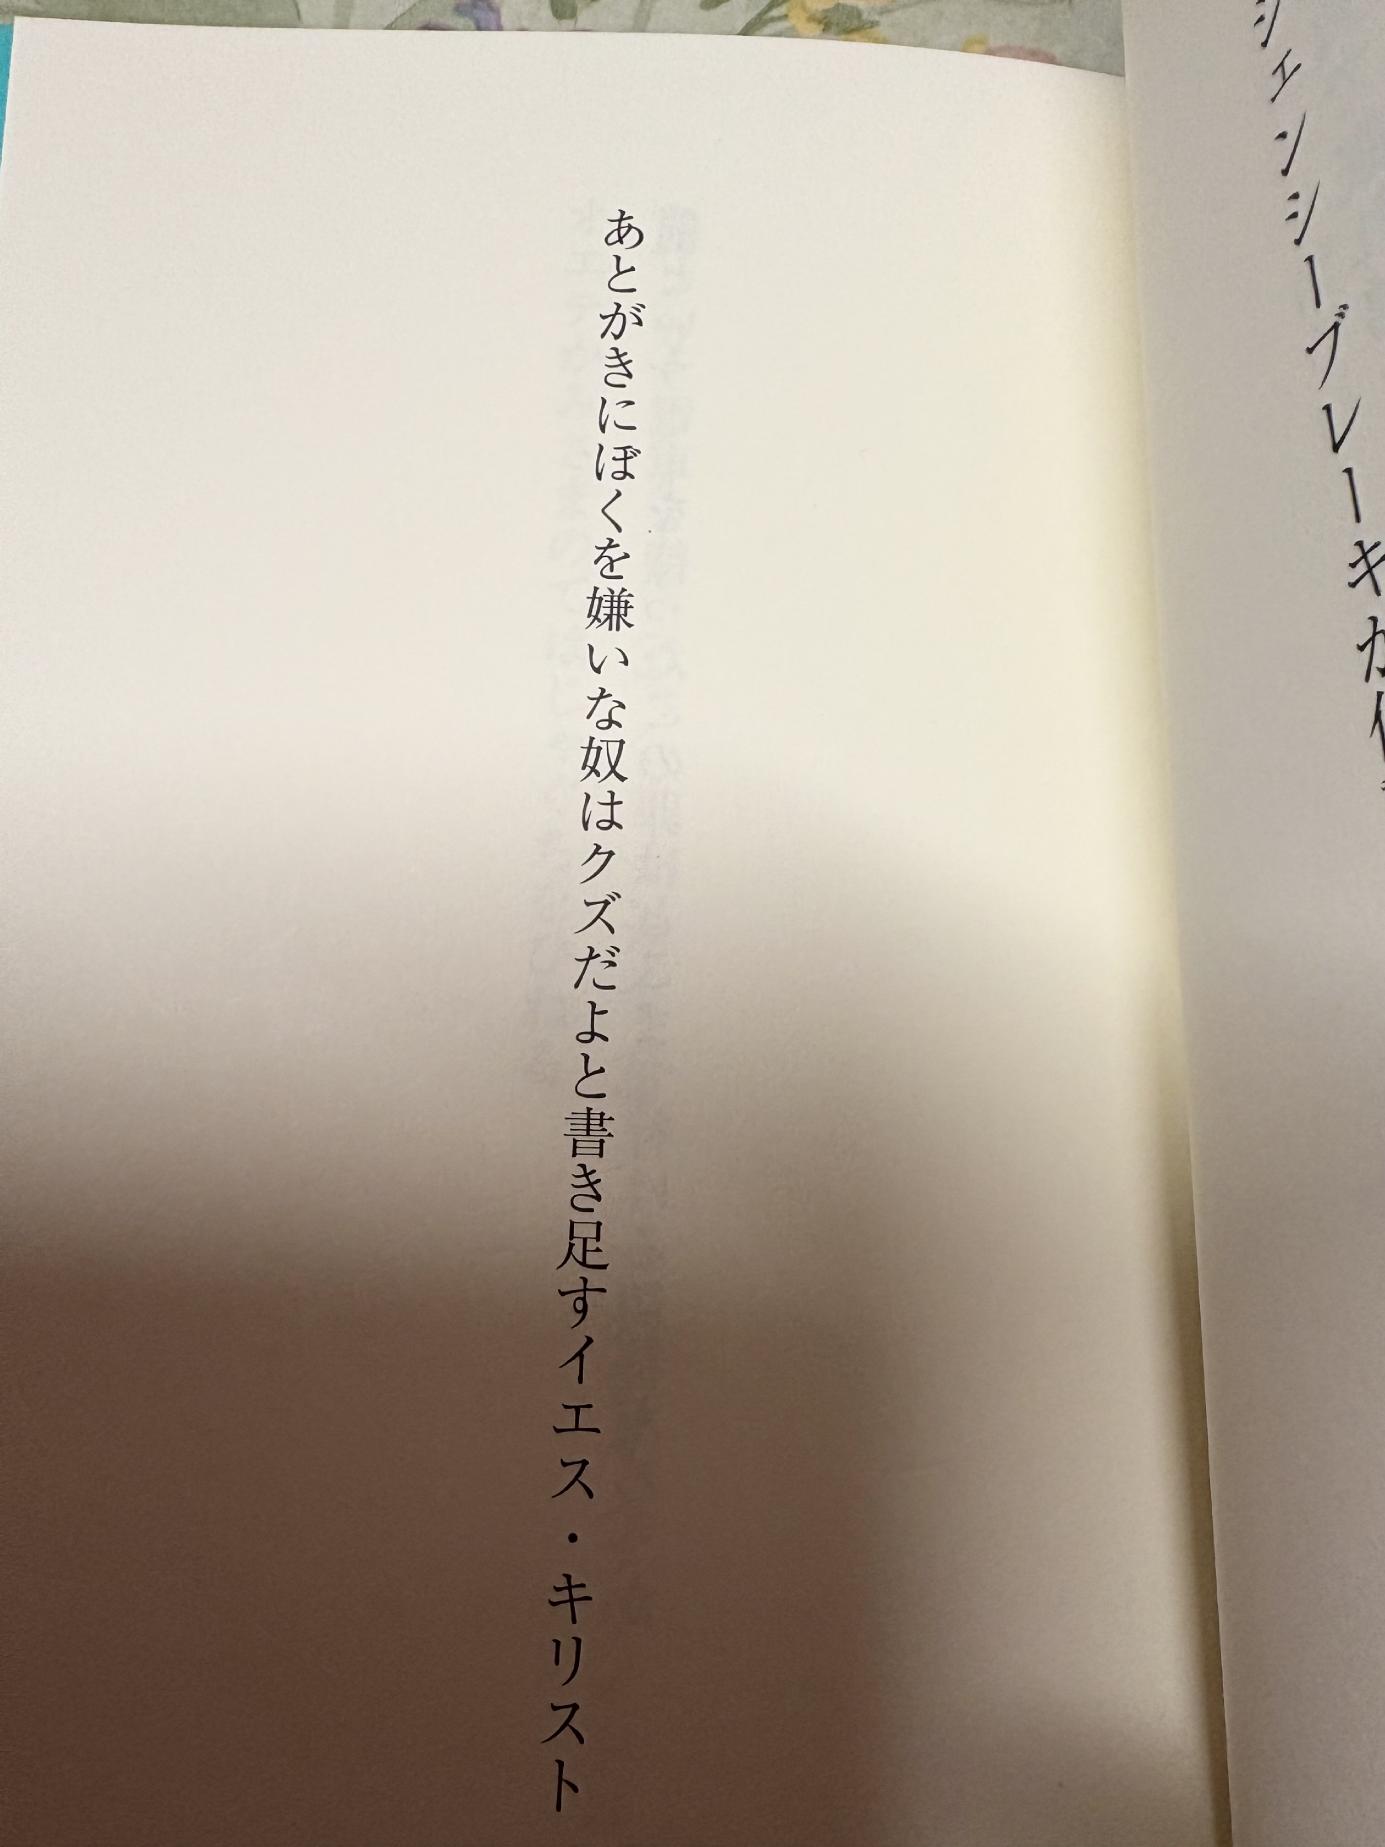 シェンシーブレーキが
あとがきにぼくを嫌いな奴はクズだよと書き足すイエス・キリスト